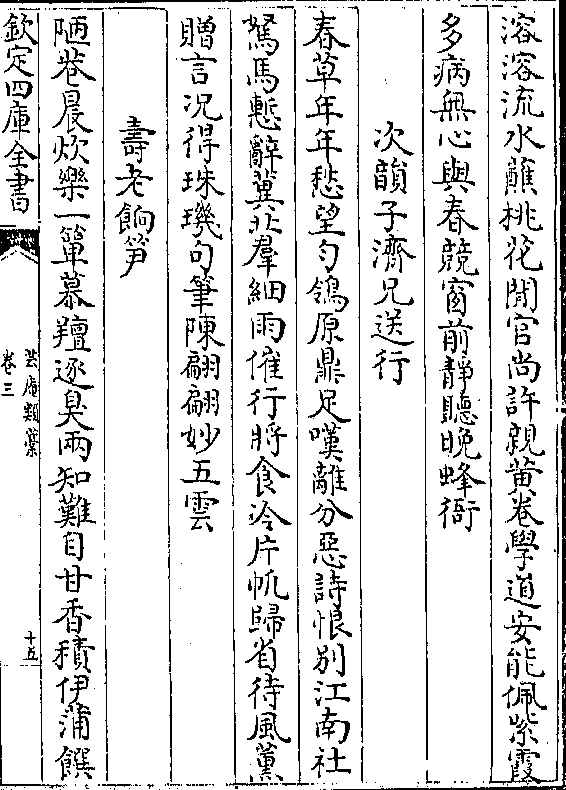 溶溶流水蘸桃花閒官尚許親黄卷學道安能佩紫霞
多病無心與春競窗前靜聽晚蜂衙
次韻子濟兄送行
春草年年愁望勻鴒原鼎足嘆離分惡詩恨别江南社
駑馬慙辭冀北羣細雨催行將食冷片帆歸省待風薫
贈言况得珠璣句筆陳翩翩妙五雲
壽老餉笋
陋巷晨炊樂一簞慕羶逐臭兩知難自甘香積伊蒲饌
欽定四庫全書
芸庵類藁
卷三
十五